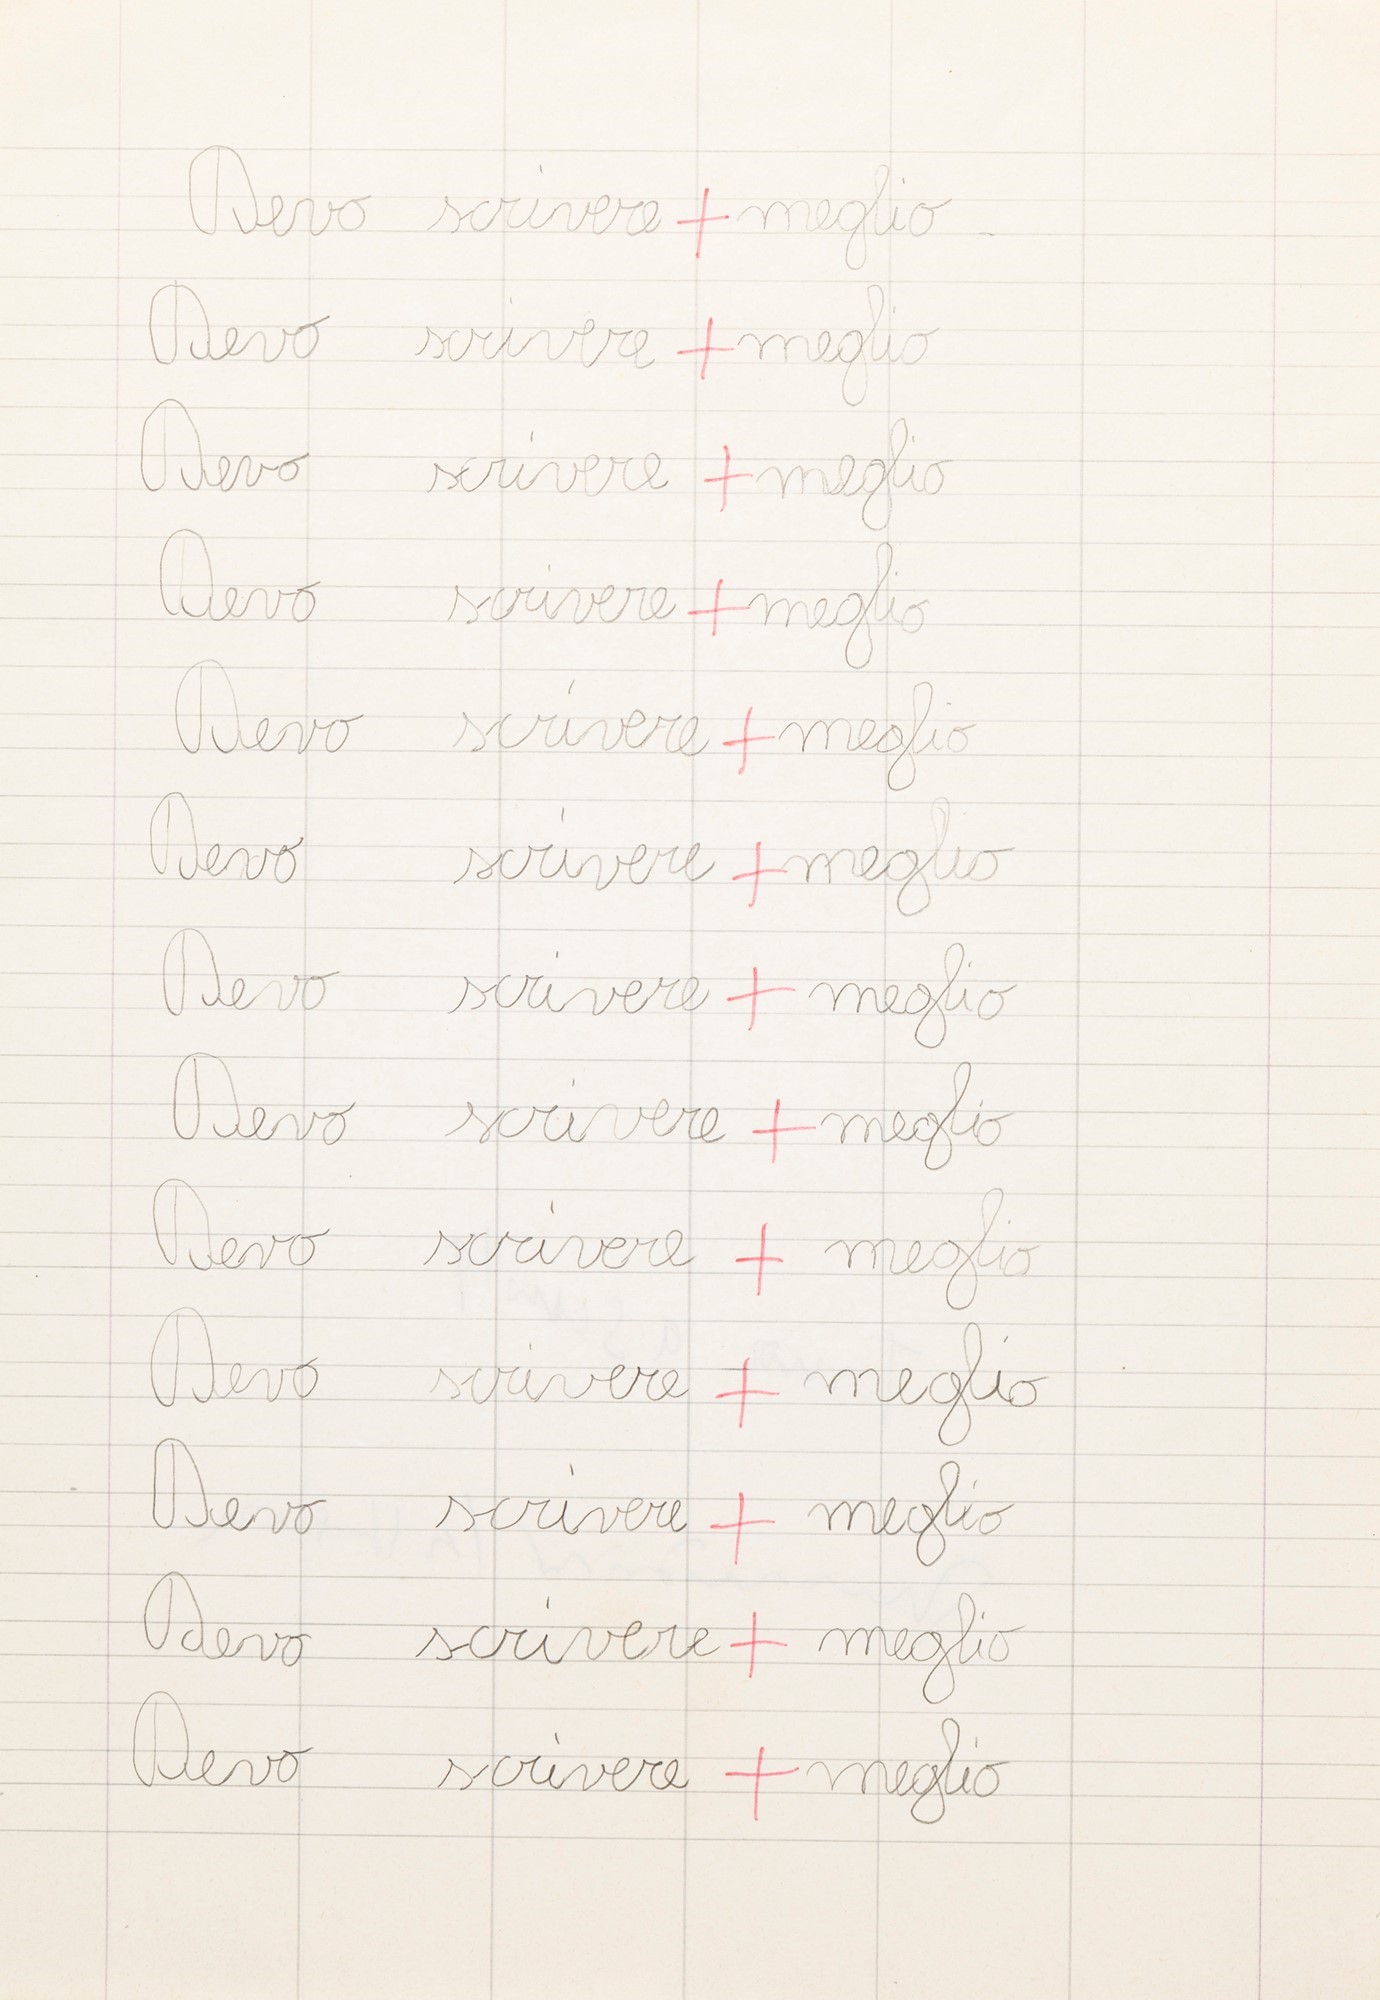 Devo scrivere + meglio
Devo scrivere + meglio
Devo scrivere + meglio
Devo scrivere + meglio
Devo scrivere + meglio
Devo scrivere + meglio
Devo scrivere + meglio
Devo scrivere + meglio
Devo scrivere + meglio
Devo scrivere + meglio
Devo scrivere + meglio
Devo scrivere + meglio
Devo scrivere + meglio